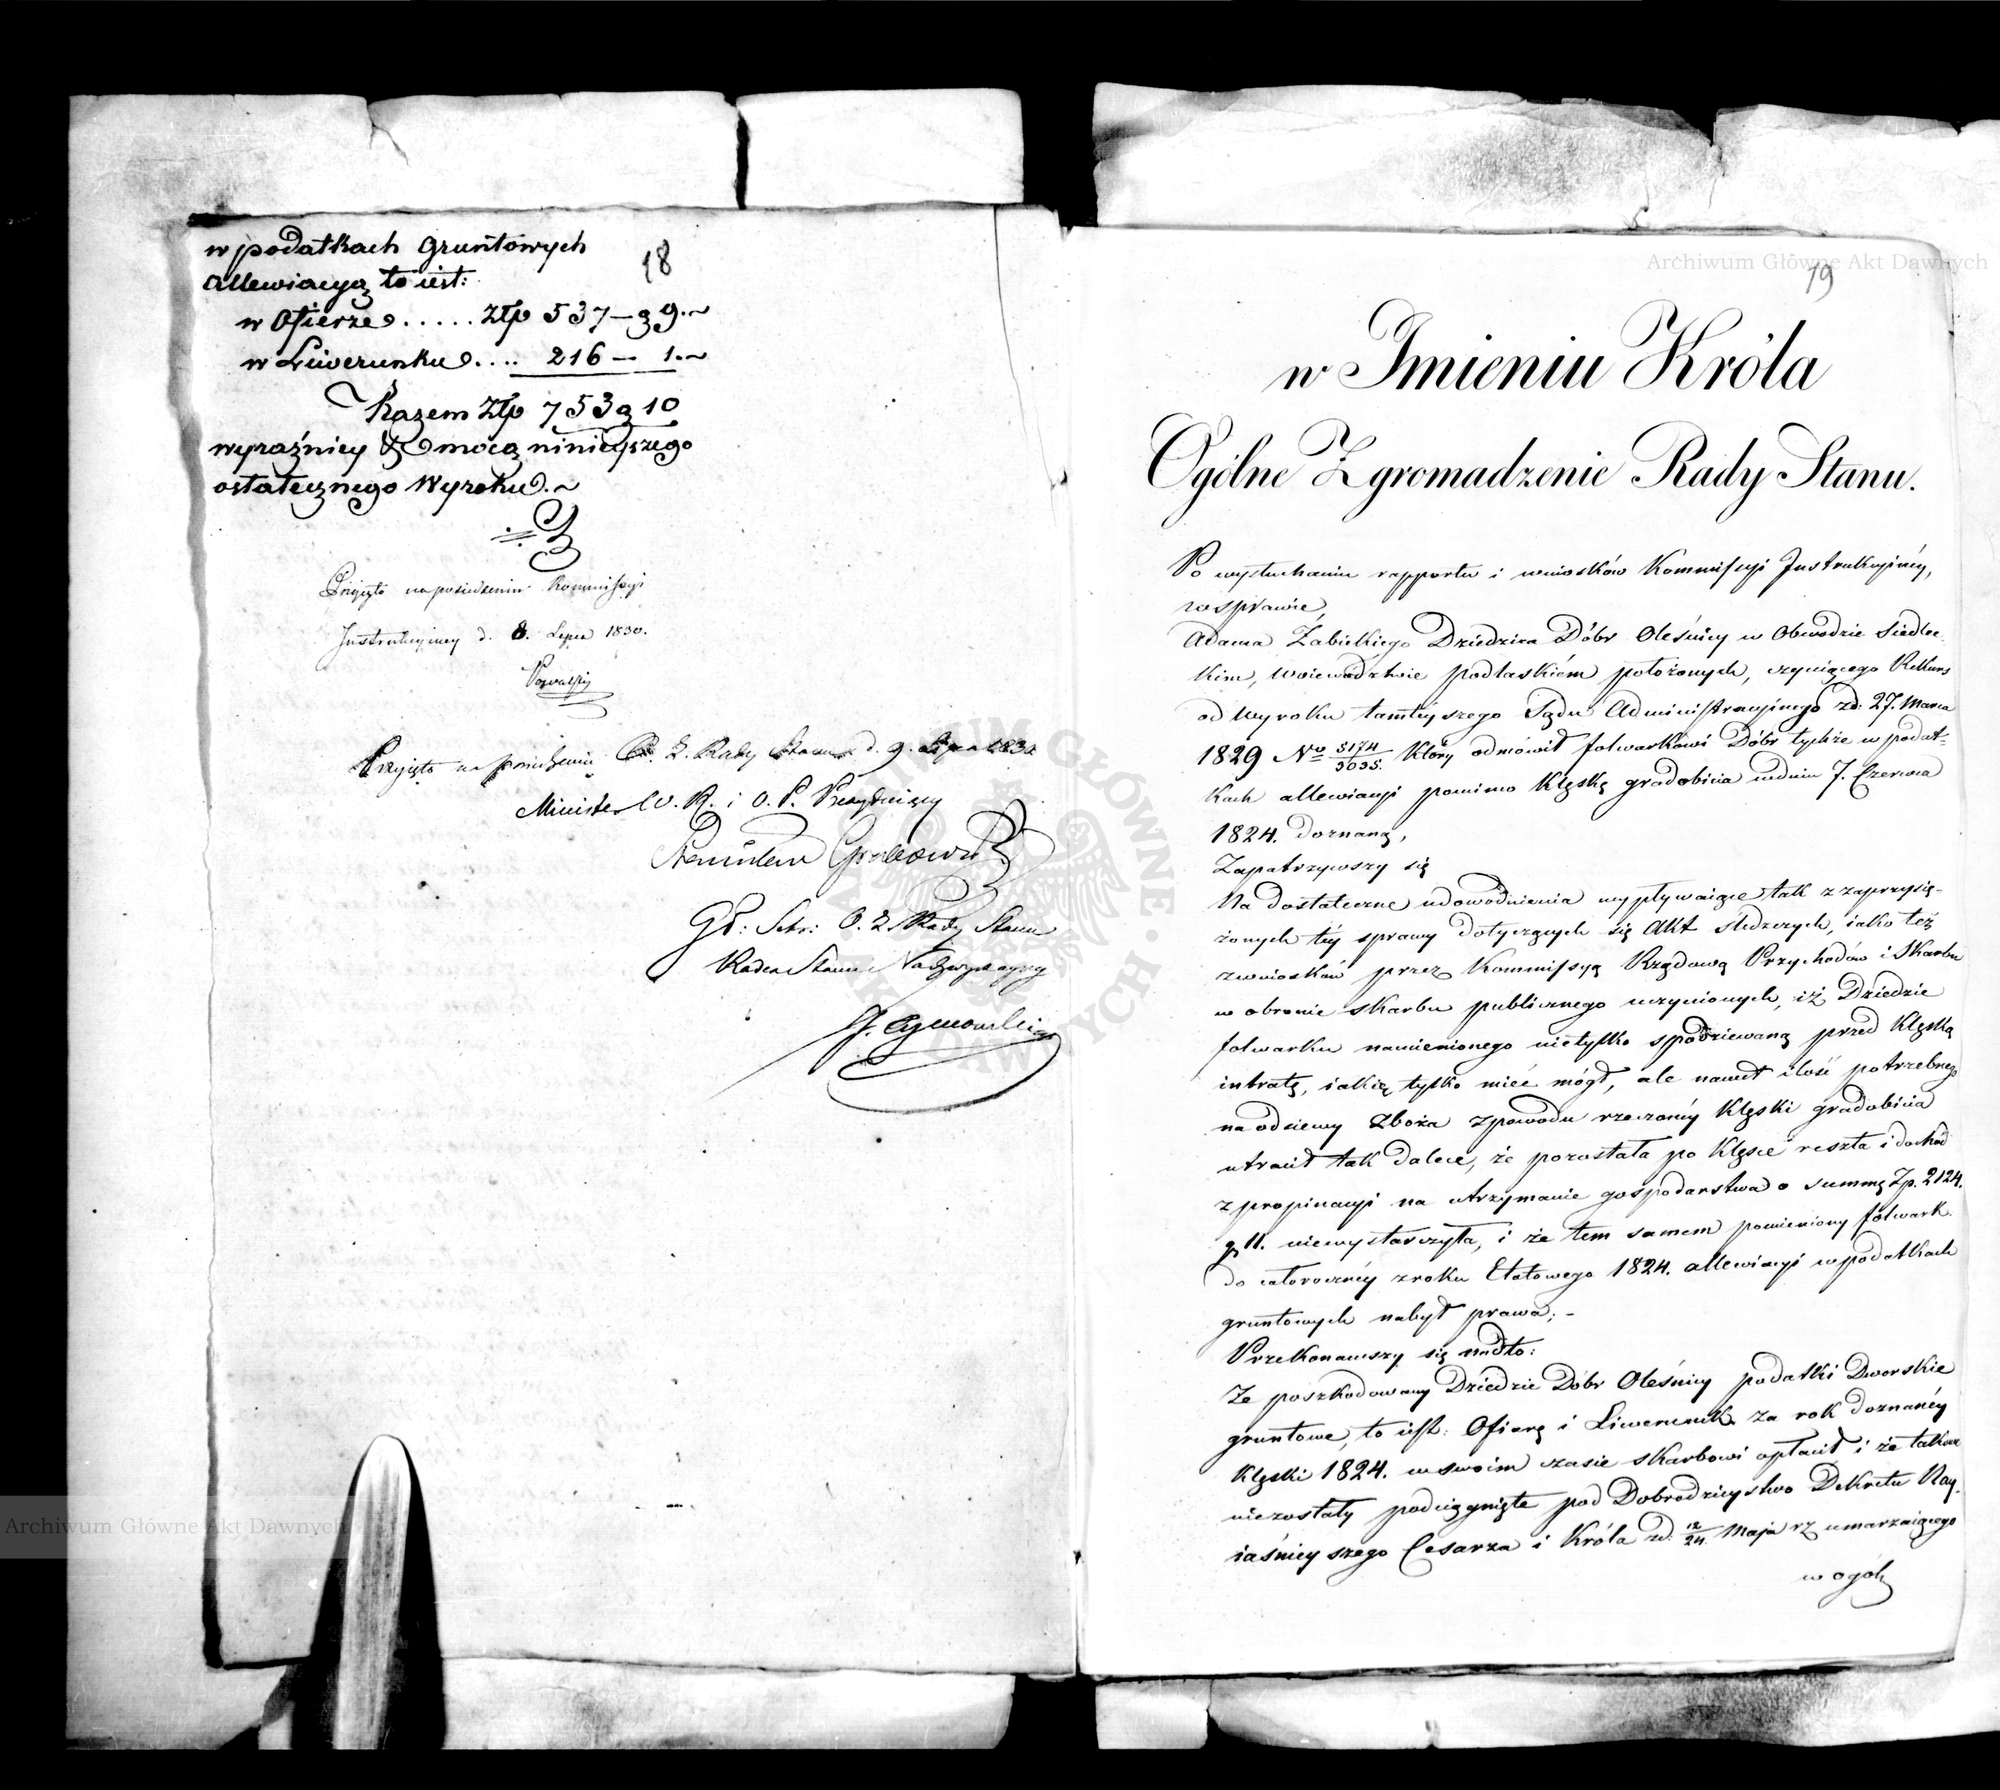 w podatkach gruntowych
18
allewiacyą to iest:
w Ofierze ..... Złp 537 – g 9.~
w Liwerunku .... 216 – 1.~
Razem Złp 753 g 10
wyraźniey & mocą ninieyszego
ostatecznego Wyroku.~
Przyięto na posiedzeniu Kommissyi
Instrukcyiney d. 8. Lipca 1830.
Przyięto na posiedzeniu O. Z. Rady Stanu d. 9. Lipca 1830
Minister W. R. i O. P. Prezyduiący
Stanisław Grabowski
Gł: Sekr: O. Z. Rady Stanu
Radca Stanu Nadzwyczayny
Archiwum Główne Akt Dawnych
19
w Imieniu Króla
Ogólne Zgromadzenie Rady Stanu.
Po wysłuchaniu rapportu i wniosków Kommissyi Instrukcyinéy,
w sprawie,
Adama Żabickiego Dziedzica Dóbr Oleśnicy w Obwodzie Siedlec
kim, Woiewództwie podlaskiém położonych, czyniącego Rekurs
od Wyroku tamtéyszego Sądu Administracyinego z d: 27. Marca
1829 No 5174/3035. który odmówił folwarkowi Dóbr tychże w podat-
kach allewiacyi pomimo klęskę gradobicia w dniu 7. Czerwca
1824. doznaną,
Zapatrzywszy się
Na dostateczne udowodnienia wypływaiące tak z zaprzysię-
żonych téy sprawy dotyczących się Akt śledczych, iako też
z wniosków przez Kommissyą Rządową Przychodów i Skarbu
w obronie skarbu publicznego uczynionych, iż Dziedzic
folwarku namienionego nietylko spodziewaną przed klęską
intratę, iakią tylko mieć mógł, ale nawet ilość potrzebnego
na odsiewy zboża z powodu rzeczonéy klęski gradobicia
utracił tak dalece, że pozostała po klęsce reszta i dochód
z propinacyi na utrzymanie gospodarstwa o summę Zp. 2124.
g 11. niewystarczyła, i że tem samem pomieniony folwark
do całorocznéy z roku Etatowego 1824. allewiacyi w podatkach
gruntowych nabył prawa; –
Przekonawszy się nadto:
Że poszkodowany Dziedzic Dóbr Oleśnicy podatki Dworskie
gruntowe, to iest: Ofiarę i Liwerunek za rok doznanéy
klęski 1824. w swoim czasie skarbowi opłacił i że takowe
niezostały podciągnięte pod Dobrodzieystwo Dekretu Nay-
iaśnieyszego Cesarza i Króla z d. 12/24. Maja rz umarzaiącego
w ogóle
Archiwum Główne Akt Dawnych
ARCHIWUM GŁÓWNE AKT DAWNYCH